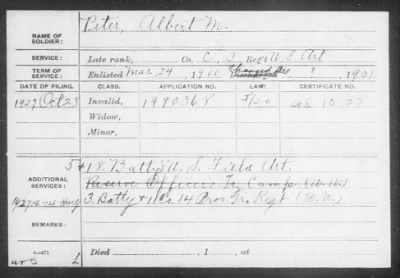 Peter, Albert M.
NAME OF SOLDIER:
SERVICE: Late rank, Co. C. 3, Reg't U. S. Art
TERM OF SERVICE: Enlisted Mar 24, 1900 1, 1901
DATE OF FILING. CLASS. APPLICATION NO. LAW. CERTIFICATE NO.
1927 Oct 23 Invalid, 1490368
Widow,
Minor.
ADDITIONAL SERVICES: 5 + 18. Batty U. S. Field Art.
Reserve Officers Tr. Camp (W.W.)
3. Batty + 1 Co. 14 Prov. Tr. Regt (W.W.)
REMARKS:
Died , 1 , at